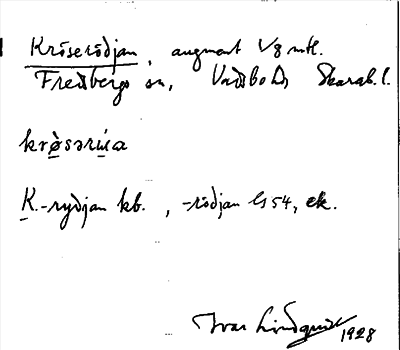 Kröseródjan, augmart 1/8 mtl.
Fredsbergs sn, Vadsbo hd, Skarab. l.
krø̀sərúa
K.-rydjan kb., -rödjan GS 54, ek.
Ivar Lindquist 1928